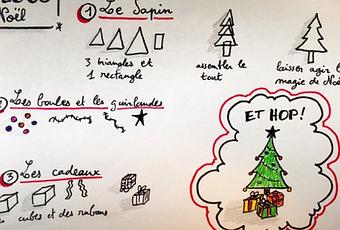 Noël
① Le Sapin
3 triangles et
1 rectangle
assembler le
tout
laisser agir la
magie de Noë
2 Les boules et les guirlandes
③ Les cadeaux
cubes et des rubans
ET HOP!